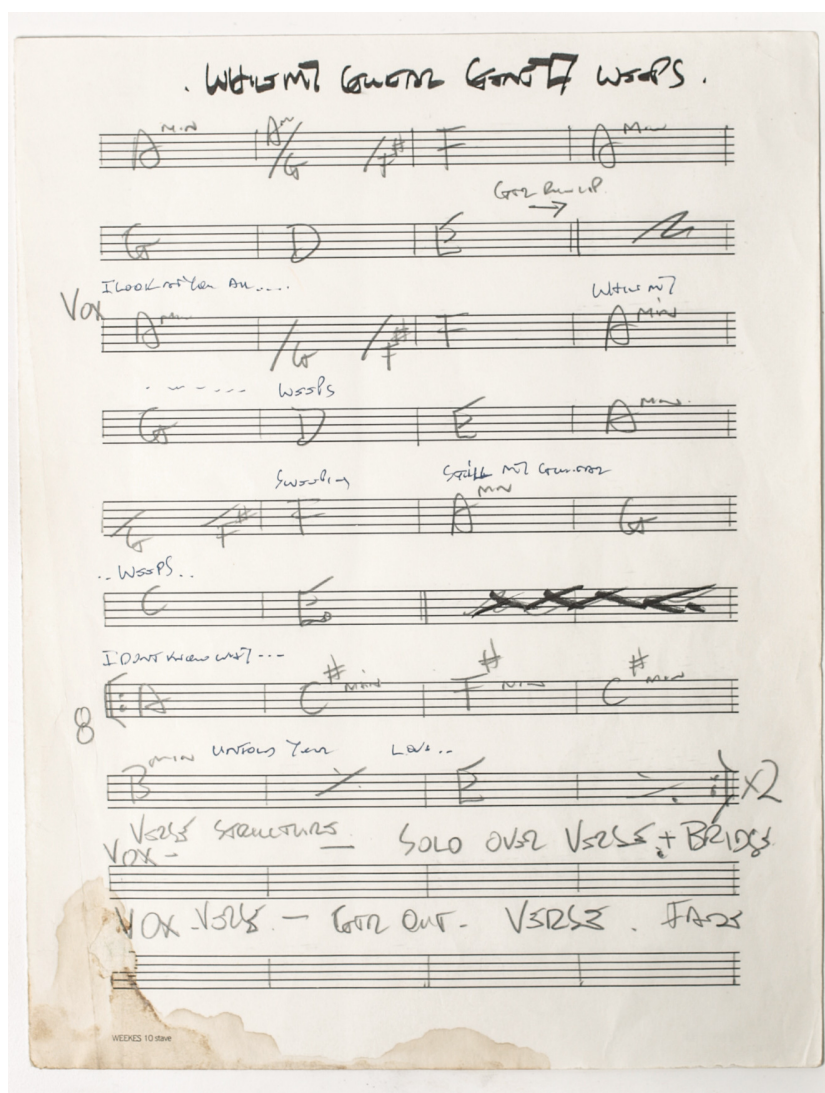 . WHILE MY GUITAR GENTLY WEEPS .
A MIN Am/G /F# F A MIN
GTR RUN UP →
G D E
I LOOK AT YOU ALL..... WHILE MY
VOX A MIN /G /F# F A MIN
- - - .... WEEPS
G D E A MIN
SWEEPING STILL MY GUITAR
/G /F# F A MIN G
.. WEEPS ..
C E
I DONT KNOW WHY ---
8 A C# MIN F# MIN C# MIN
UNFOLD YOUR LOVE ..
B MIN ٪ E ٪ x2
VERSE STRUCTURE — SOLO OVER VERSE + BRIDGE
VOX -
VOX - VERSE - GTR OUT - VERSE . FADE
WEEKES 10 stave